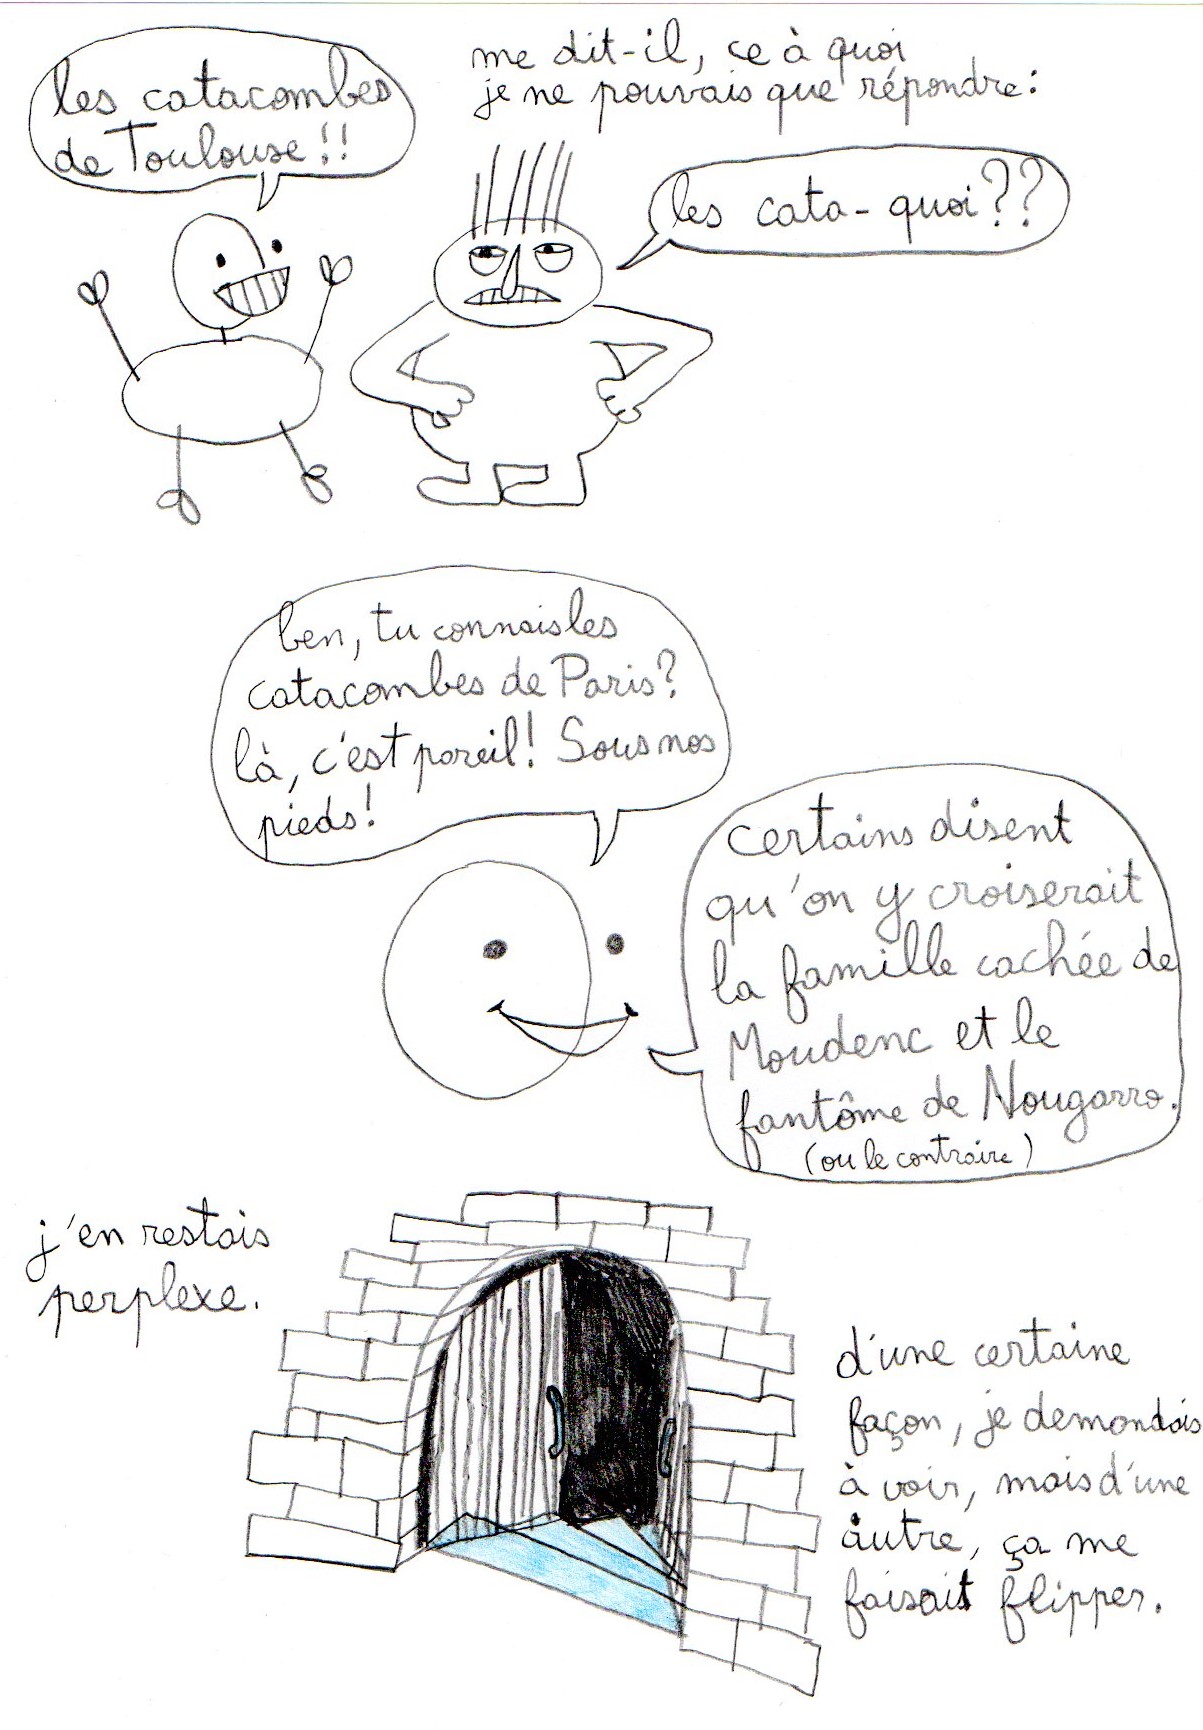 les catacombes
de Toulouse!!
me dit-il, ce à quoi
je ne pouvais que répondre:
les cata-quoi??
ben, tu connais les
catacombes de Paris?
là, c'est pareil! Sous nos
pieds!
certains disent
qu'on y croiserait
la famille cachée de
Moudenc et le
fantôme de Nougarro.
(ou le contraire)
j'en restais
perplexe.
d'une certaine
façon, je demandais
à voir, mais d'une
autre, ça me
faisait flipper.